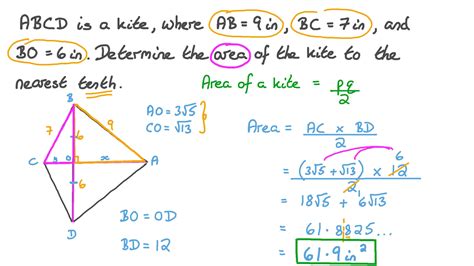 ABCD is a kite, where AB = 9 in, BC = 7 in, and
BO = 6 in. Determine the area of the kite to the
nearest tenth.
Area of a kite = pq/2
B
7
6
9
C
O
x
A
6
D
AO = 3√5
CO = √13
BO = OD
BD = 12
Area = AC × BD / 2
= (3√5 + √13) × 12 / 2
6
1
= 18√5 + 6√13
= 61.8825...
= 61.9 in²